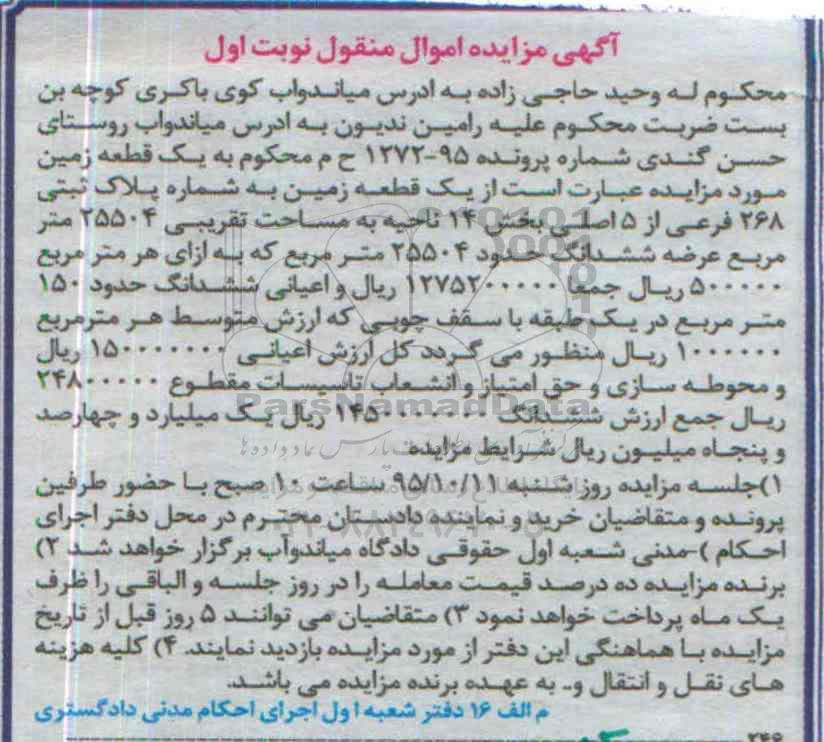 آگهی مزایده اموال منقول نوبت اول
محکوم له وحید حاجی زاده به ادرس میاندواب کوی باکری کوچه بن
بست ضربت محکوم علیه رامین ندیون به ادرس میاندواب روستای
حسن گندی شماره پرونده ۹۵-۱۲۷۲ ح م محکوم به یک قطعه زمین
مورد مزایده عبارت است از یک قطعه زمین به شماره پلاک ثبتی
۲۶۸ فرعی از ۵ اصلی بخش ۱۴ ناحیه به مساحت تقریبی ۲۵۵۰۴ متر
مربع عرضه ششدانگ حدود ۲۵۵۰۴ متر مربع که به ازای هر متر مربع
۵۰۰۰۰۰ ریال جمعا ۱۲۷۵۲۰۰۰۰۰ ریال و اعیانی ششدانگ حدود ۱۵۰
متر مربع در یک طبقه با سقف چوبی که ارزش متوسط هر مترمربع
۱۰۰۰۰۰۰ ریال منظور می گردد کل ارزش اعیانی ۱۵۰۰۰۰۰۰۰ ریال
و محوطه سازی و حق امتیاز و انشعاب تاسیسات مقطوع ۲۴۸۰۰۰۰۰
ریال جمع ارزش ششدانگ ۱۴۵۰۰۰۰۰۰۰ ریال یک میلیارد و چهارصد
و پنجاه میلیون ریال شرایط مزایده
۱)جلسه مزایده روز شنبه ۹۵/۱۰/۱۱ ساعت ۱۰ صبح با حضور طرفین
پرونده و متقاضیان خرید و نماینده دادستان محترم در محل دفتر اجرای
احکام )-مدنی شعبه اول حقوقی دادگاه میاندوآب برگزار خواهد شد ۲)
برنده مزایده ده درصد قیمت معامله را در روز جلسه و الباقی را ظرف
یک ماه پرداخت خواهد نمود ۳) متقاضیان می توانند ۵ روز قبل از تاریخ
مزایده با هماهنگی این دفتر از مورد مزایده بازدید نمایند. ۴) کلیه هزینه
های نقل و انتقال و.. به عهده برنده مزایده می باشد.
م الف ۱۶ دفتر شعبه اول اجرای احکام مدنی دادگستری
ParsNamadData